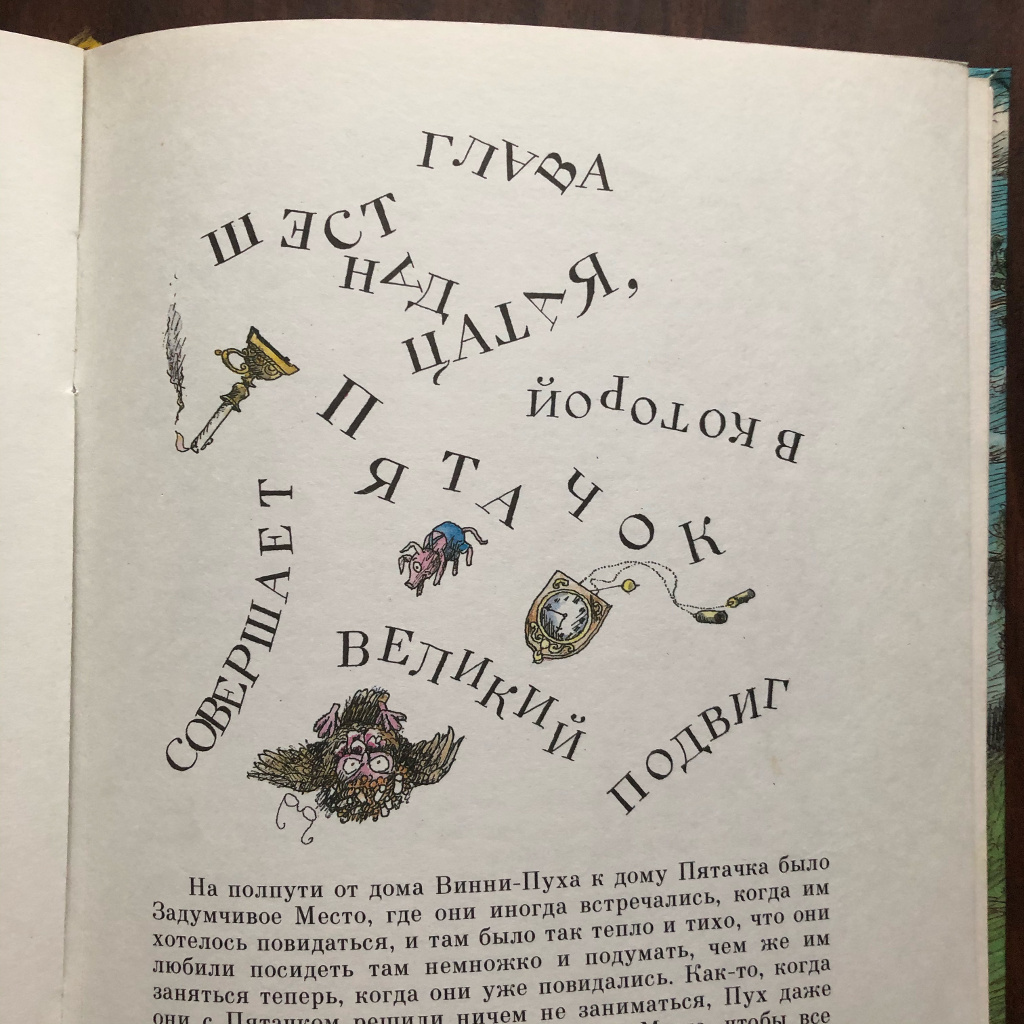 ГЛАВА
ШЕСТ
НАД
ЦАТАЯ,
В КОТОРОЙ
ПЯТАЧОК
СОВЕРШАЕТ
ВЕЛИКИЙ
ПОДВИГ
На полпути от дома Винни-Пуха к дому Пятачка было
Задумчивое Место, где они иногда встречались, когда им
хотелось повидаться, и там было так тепло и тихо, что они
любили посидеть там немножко и подумать, чем же им
заняться теперь, когда они уже повидались. Как-то, когда
они с Пятачком решили ничем не заниматься, Пух даже
чтобы все